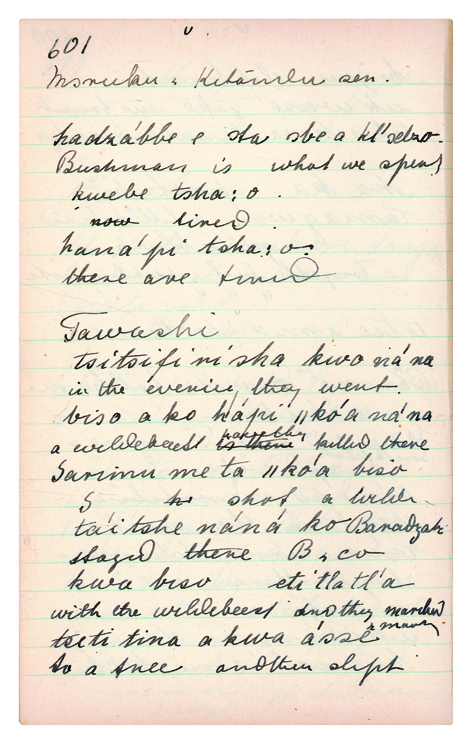 601
Msruku & Kitāmlu sen.
hadzábbe e sta sbe a kl'sedzo.
Bushman is what we spend
kwebe tsha: o.
now tired.
haná'pi tsha: o:
there are tired
Tawashi
tsitsifiriska kwo ná na
in the evening they went.
biso a ko hápii ǁkóa nána
a wildebeest is there killed there
Sarimu me ta ǁkóa biso
S he shot a wilde.
táitshe náná ko Baradzah
stayed there B & co
kwa biso etitlatl'a
with the wildebeest and they marched
& march
tseti tina a kwa ássé
to a tree and then slept